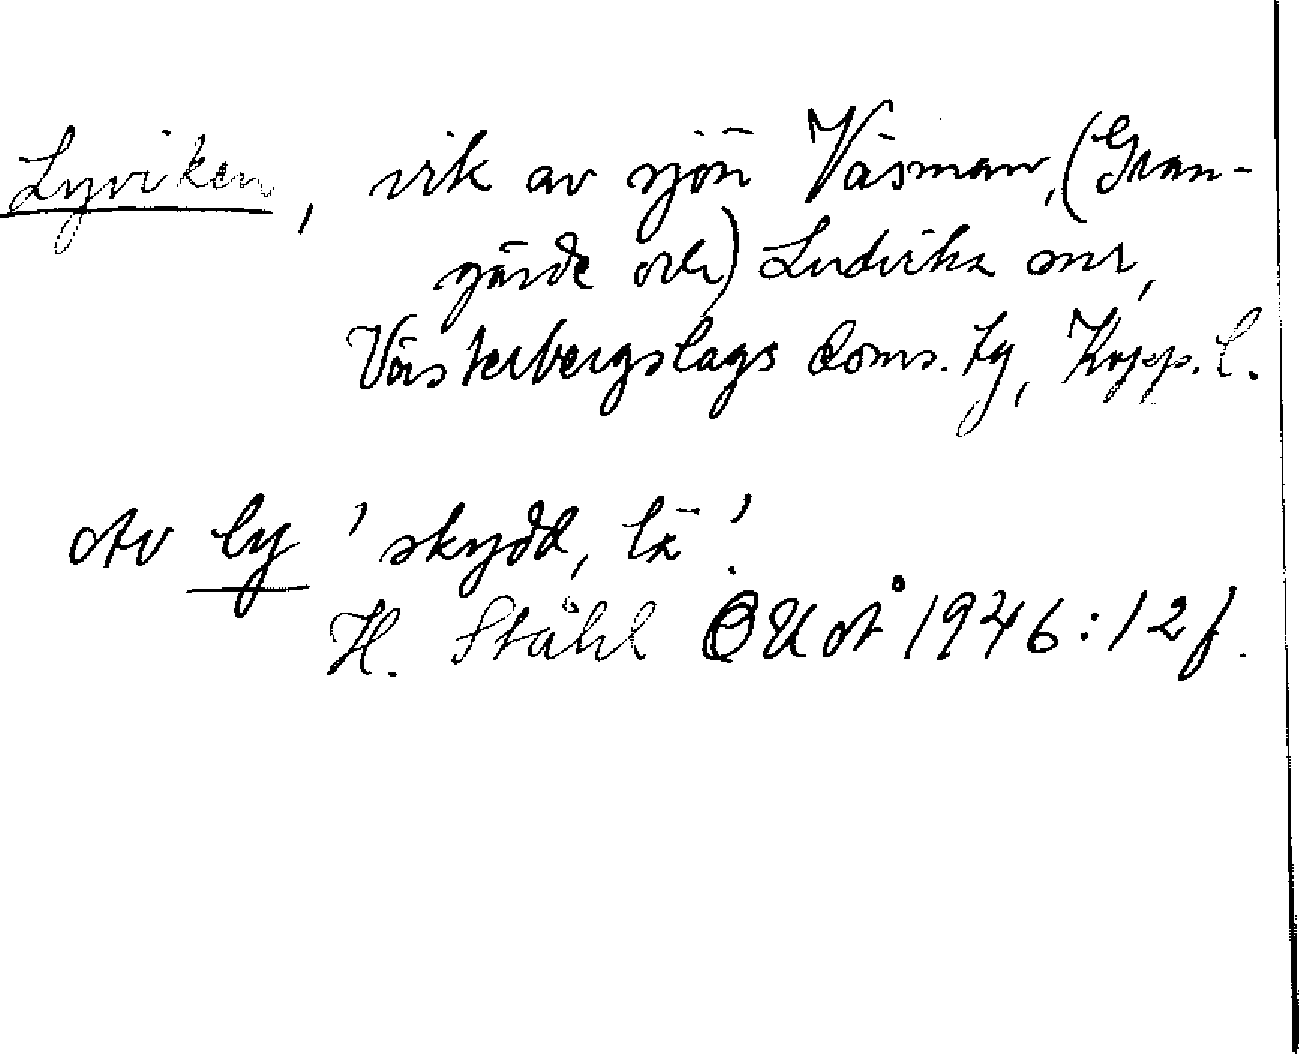 Lyviken, vik av sjön Väsman, (Gran-
gärde och) Ludvika snr,
Västerbergslags doms. tg, Kopp. l.
Av ly 'skydd, lä'.
H. Ståhl OUÅ 1946:12f.